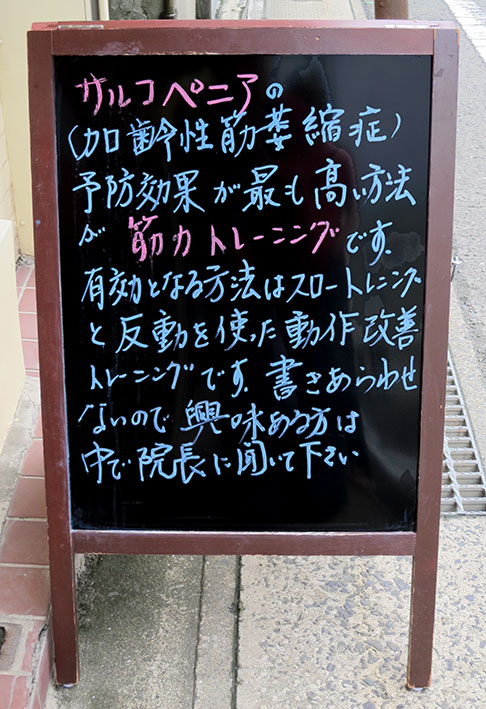 サルコペニアの
(加齢性筋萎縮症)
予防効果が最も高い方法
が筋力トレーニングです.
有効となる方法はスロートレーニング
と反動を使った動作改善
トレーニングです.書きあらわせ
ないので興味ある方は
中で院長に聞いて下さい